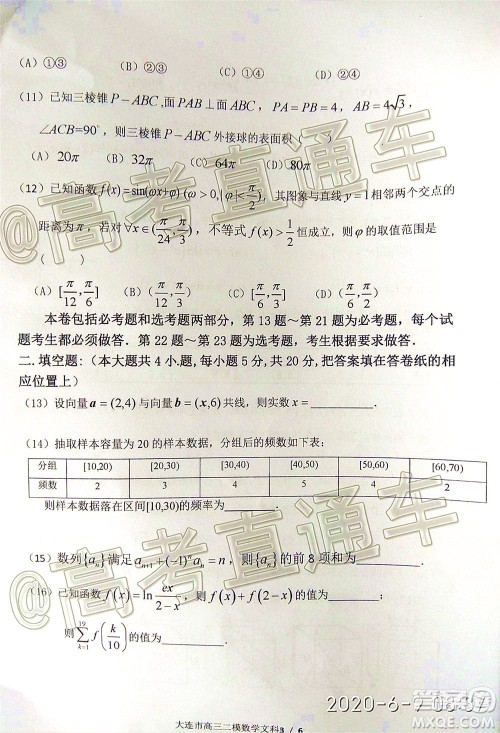 (A) ①③ (B) ②③ (C) ①④ (D) ②④
(11) 已知三棱锥 P－ABC,面 PAB⊥面 ABC, PA＝PB＝4, AB＝4√3,
∠ACB=90°, 则三棱锥 P－ABC 外接球的表面积( )
(A) 20π (B) 32π (C) 64π (D) 80π
(12) 已知函数 f(x)=sin(ωx+φ)(ω>0,|φ|<π/2), 其图象与直线 y＝1 相邻两个交点的
距离为π, 若对∀x∈(π/24,π/3), 不等式 f(x)>1/2 恒成立, 则φ的取值范围是
(A) [π/12,π/6] (B) (π/6,π/3) (C) [π/12,π/3] (D) (π/6,π/3]
本卷包括必考题和选考题两部分, 第 13 题～第 21 题为必考题, 每个试
题考生都必须做答. 第 22 题～第 23 题为选考题, 考生根据要求做答.
二. 填空题:（本大题共 4 小题, 每小题 5 分, 共 20 分, 把答案填在答卷纸的相
应位置上）
(13) 设向量 a＝(2,4) 与向量 b＝(x,6) 共线, 则实数 x＝________.
(14) 抽取样本容量为 20 的样本数据, 分组后的频数如下表:
分组 [10,20) [20,30) [30,40) [40,50) [50,60) [60,70)
频数 2 3 4 5 4 2
则样本数据落在区间[10,30)的频率为________.
(15) 数列{aₙ}满足 aₙ₊₁+(-1)ⁿaₙ＝n, 则{aₙ}的前 8 项和为________.
(16) 已知函数 f(x)＝ln ex/(2-x), 则 f(x)+f(2-x) 的值为________;
则 ∑_{k=1}^{19} f(k/10) 的值为________.
大连市高三二模数学文科3 / 6
@高考直通车
@高考直通车
2020-6-7